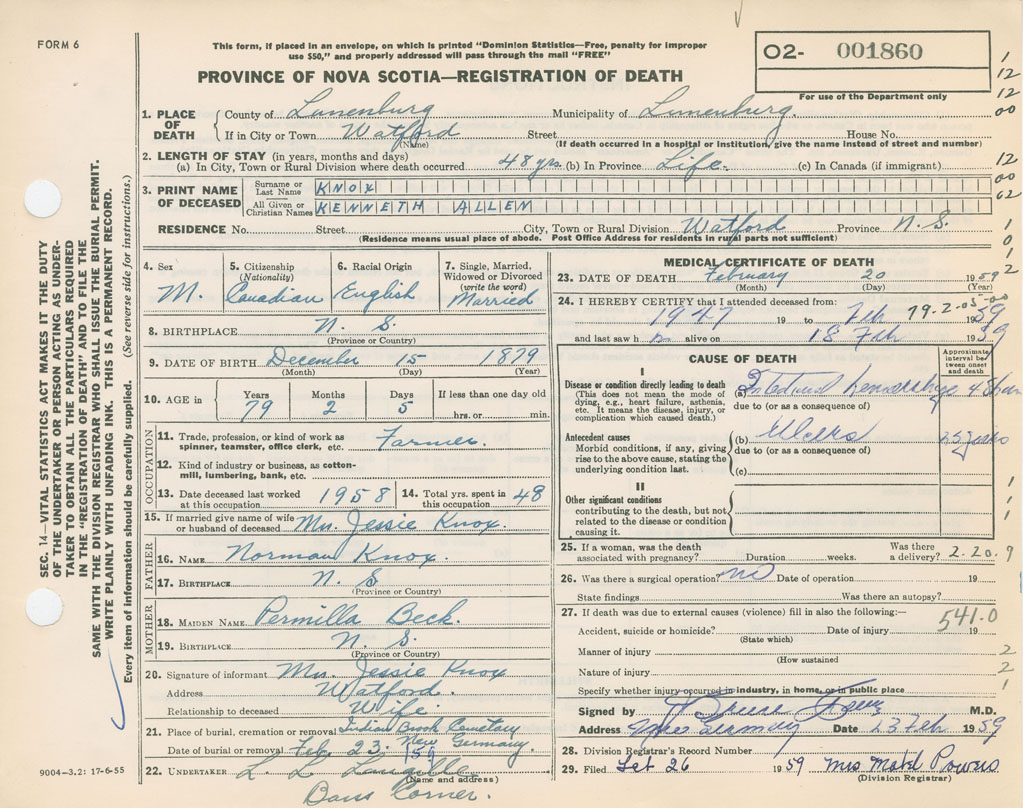 FORM 6
This form, if placed in an envelope, on which is printed "Dominion Statistics—Free, penalty for improper
use $50," and properly addressed will pass through the mail "FREE"
PROVINCE OF NOVA SCOTIA—REGISTRATION OF DEATH
02- 001860
For use of the Department only
1. PLACE OF DEATH
County of Lunenburg Municipality of Lunenburg.
If in City or Town Watford Street House No.
(Name) (If death occurred in a hospital or institution, give the name instead of street and number)
2. LENGTH OF STAY (in years, months and days)
(a) In City, Town or Rural Division where death occurred 48 yrs. (b) In Province Life. (c) In Canada (if immigrant)
3. PRINT NAME OF DECEASED
Surname or Last Name KNOX
All Given or Christian Names KENNETH ALLEN
RESIDENCE No. Street City, Town or Rural Division Watford Province N. S.
(Residence means usual place of abode. Post Office Address for residents in rural parts not sufficient)
4. Sex M.
5. Citizenship (Nationality) Canadian
6. Racial Origin English
7. Single, Married, Widowed or Divorced (write the word) Married
8. BIRTHPLACE N. S.
(Province or Country)
9. DATE OF BIRTH December 15 1879
(Month) (Day) (Year)
10. AGE in Years 79 Months 2 Days 5 If less than one day old hrs. or min.
OCCUPATION
11. Trade, profession, or kind of work as spinner, teamster, office clerk, etc. Farmer.
12. Kind of industry or business, as cotton-mill, lumbering, bank, etc.
13. Date deceased last worked at this occupation 1958
14. Total yrs. spent in this occupation 48
15. If married give name of wife or husband of deceased Mrs. Jessie Knox.
FATHER
16. NAME Norman Knox.
17. BIRTHPLACE N. S
(Province or Country)
MOTHER
18. MAIDEN NAME Permilla Beck.
19. BIRTHPLACE N. S.
(Province or Country)
20. Signature of informant Mrs. Jessie Knox
Address Watford.
Relationship to deceased Wife.
21. Place of burial, cremation or removal Indian Brook Cemetary
New Germany
Date of burial or removal Feb 23. 159
22. UNDERTAKER L. L. Langille
(Name and address)
Barss Corner.
9004—3.2: 17-6-55
MEDICAL CERTIFICATE OF DEATH
23. DATE OF DEATH February 20 1959
(Month) (Day) (Year)
24. I HEREBY CERTIFY that I attended deceased from:
1947 19 to Feb 1959
79-2-05-00
and last saw h m alive on 18 Feb 1959
CAUSE OF DEATH
Approximate interval between onset and death
I
Disease or condition directly leading to death
(This does not mean the mode of dying, e.g., heart failure, asthenia, etc. It means the disease, injury, or complication which caused death.)
(a)
due to (or as a consequence of)
Antecedent causes
Morbid conditions, if any, giving rise to the above cause, stating the underlying condition last.
(b) Ulcers
due to (or as a consequence of)
(c)
II
Other significant conditions
contributing to the death, but not related to the disease or condition causing it.
25. If a woman, was the death associated with pregnancy? Duration weeks. Was there a delivery? 2.20.9
26. Was there a surgical operation? no Date of operation 19
State findings Was there an autopsy?
27. If death was due to external causes (violence) fill in also the following:— 541.0
Accident, suicide or homicide? Date of injury 19
(State which)
Manner of injury
(How sustained
Nature of injury
Specify whether injury occurred in industry, in home, or in public place
Signed by M.D.
Address New Germany Date 23 Feb 1959
28. Division Registrar's Record Number
29. Filed 26 1959 Mrs Mabel Powers
(Division Registrar)
SEC. 14—VITAL STATISTICS ACT MAKES IT THE DUTY
OF THE UNDERTAKER OR PERSON ACTING AS UNDER-
TAKER TO OBTAIN ALL THE PARTICULARS REQUIRED
IN THE "REGISTRATION OF DEATH" AND TO FILE THE
SAME WITH THE DIVISION REGISTRAR WHO SHALL ISSUE THE BURIAL PERMIT.
WRITE PLAINLY WITH UNFADING INK. THIS IS A PERMANENT RECORD.
Every item of information should be carefully supplied. (See reverse side for instructions.)
1
12
12
00
12
00
62
1
0
1
2
1
1
1
2
2
1